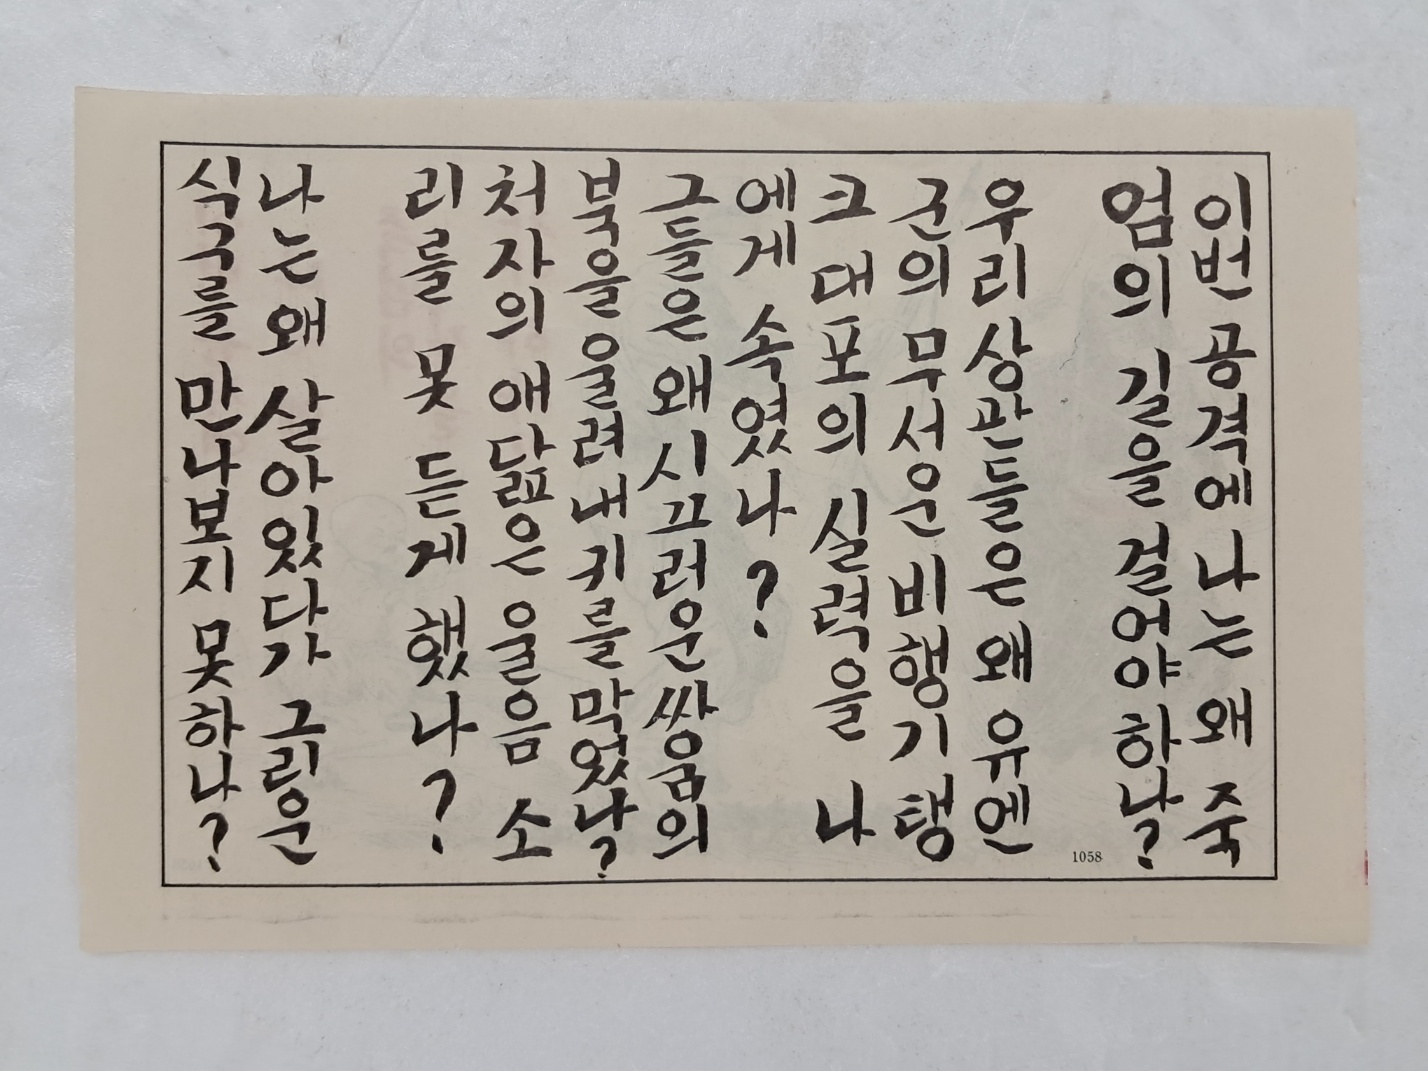 이번 공격에 나는 왜 죽
엄의 길을 걸어야 하나?
우리 상관들은 왜 유엔
군의 무서운 비행기 탱
크 대포의 실력을 나
에게 속였나?
그들은 왜 시끄러운 쌍움의
북을 울려 내 귀를 막었나?
처자의 애닯은 울음 소
리를 못 듣게 했나?
나는 왜 살아있다가 그리운
식구를 만나보지 못하나?
1058